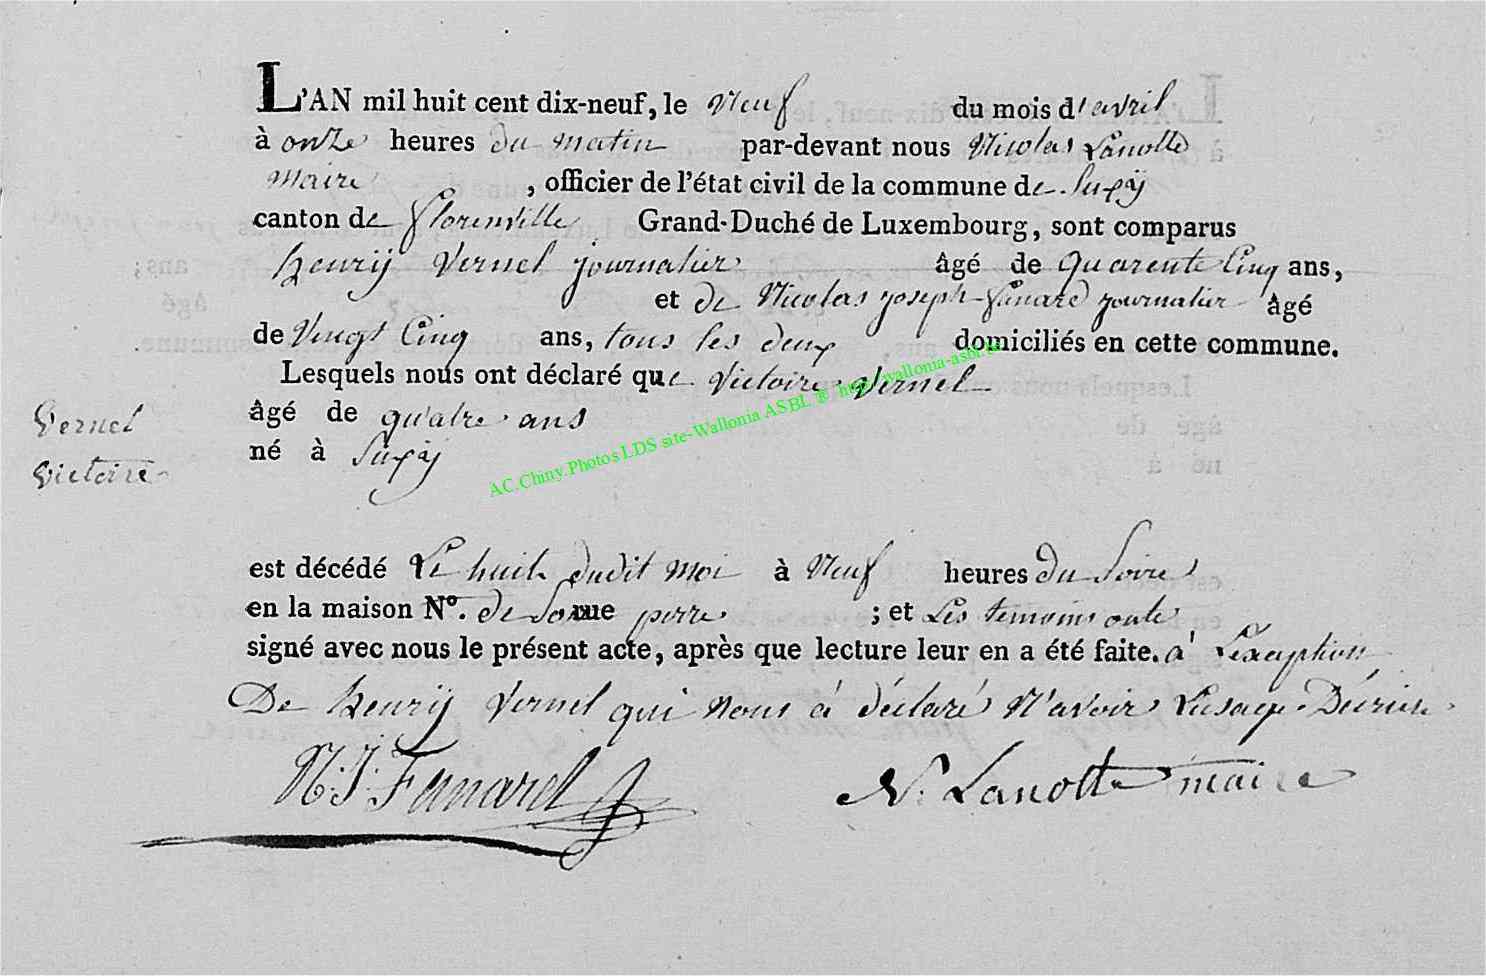 L'AN mil huit cent dix-neuf, le Neuf du mois d'avril
à onze heures du matin par-devant nous Nicolas Lanotte
maire, officier de l'état civil de la commune de Suxÿ
canton de florenville Grand-Duché de Luxembourg, sont comparus
henrÿ Vernel journalier âgé de quarente Cinq ans,
et de Nicolas joseph journalier âgé
de Vingt Cinq ans, tous les deux domiciliés en cette commune.
Lesquels nous ont déclaré que Victoire Vernel
Vernel
Victoire
âgé de quatre ans
né à Suxÿ
AC.Chiny.Photos LDS site-Wallonia ASBL ® http://wallonia-asbl.be
est décédé Le huit dudit moi à Neuf heures du Soire
en la maison Nº. de Son rue perre ; et Les temoins onte
signé avec nous le présent acte, après que lecture leur en a été faite. à Lexception
De henrÿ Vernel qui nous á déclaré N'avoir Lusage Décrire
N. J. Fanard
N. Lanotte maire